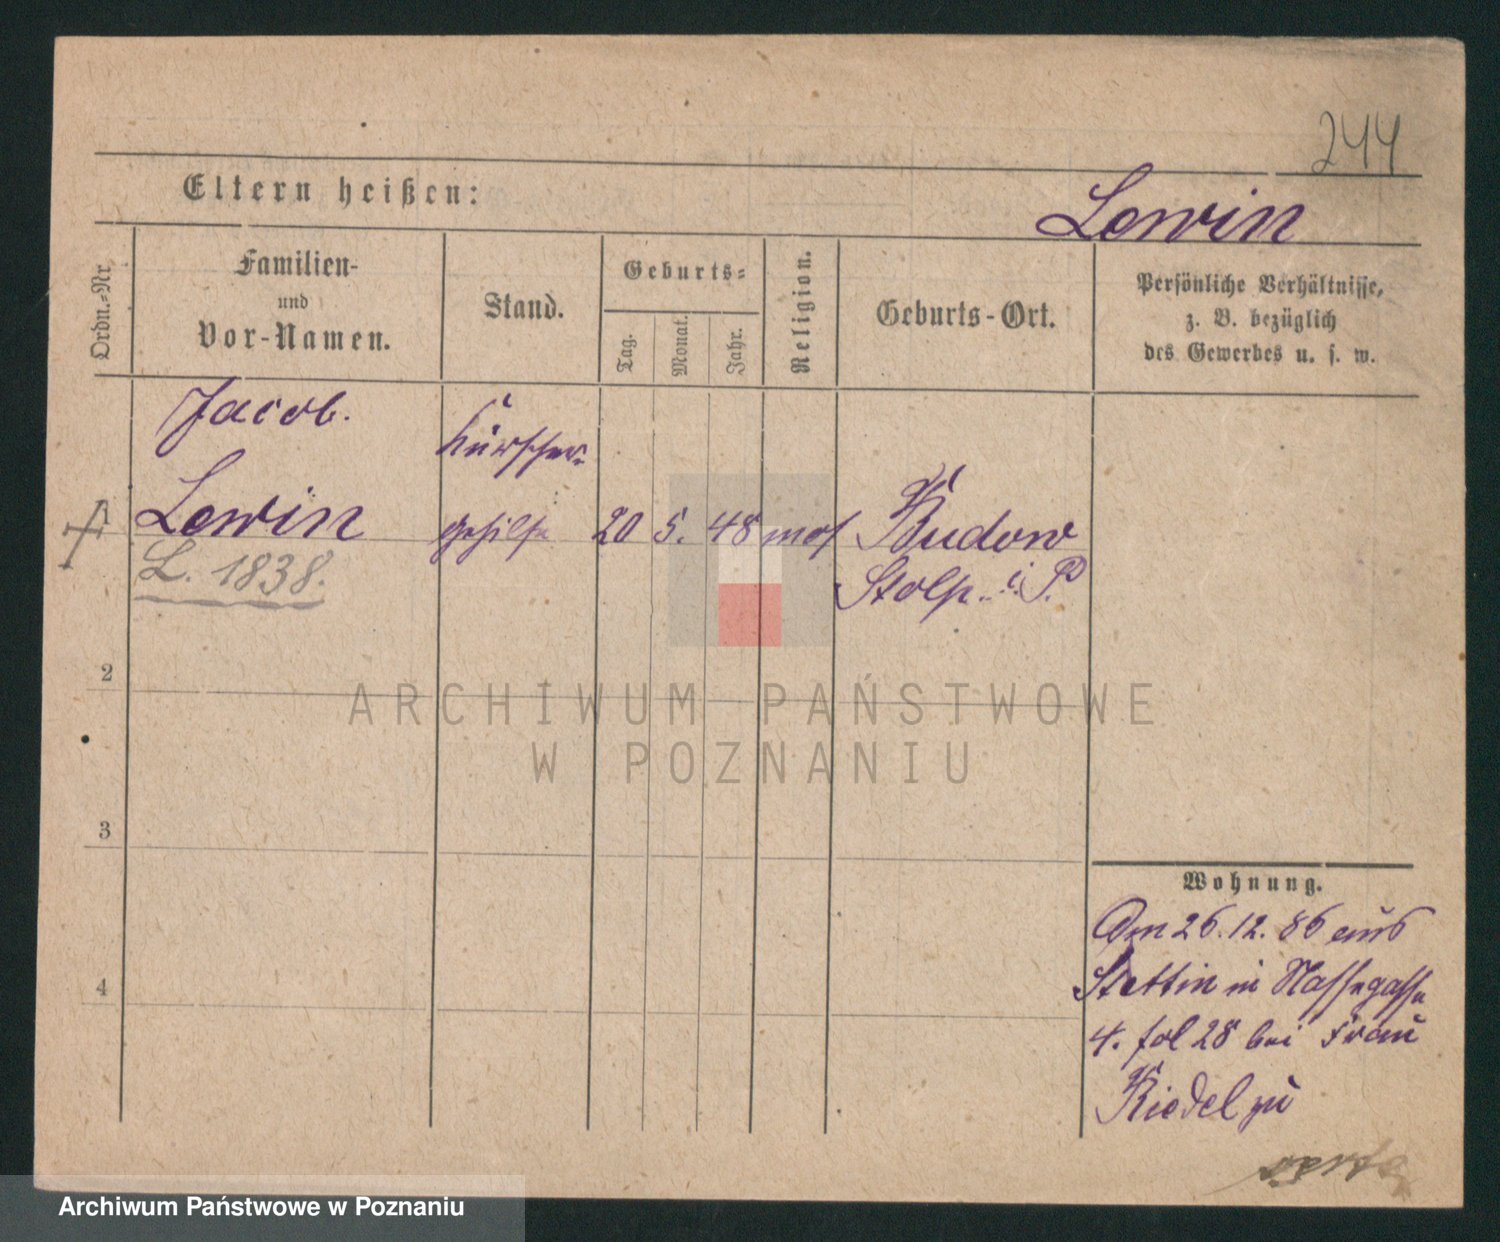 244
Eltern heißen:
Lewin
Ordn.-Nr.
Familien-
und
Vor-Namen.
Stand.
Geburts-
Tag.
Monat.
Jahr.
Religion.
Geburts-Ort.
Persönliche Verhältnisse,
z. B. bezüglich
des Gewerbes u. s. w.
Jacob.
Kürschner-
1 Lewin gehilfe 20 5. 48 mos Budow
L. 1838.
Stolp i. P.
2
ARCHIWUM PAŃSTWOWE
W POZNANIU
3
4
Wohnung.
Am 26.12.86 aus
Stettin in Nassegasse
4. fol 28 bei Frau
Riedel zu
Archiwum Państwowe w Poznaniu